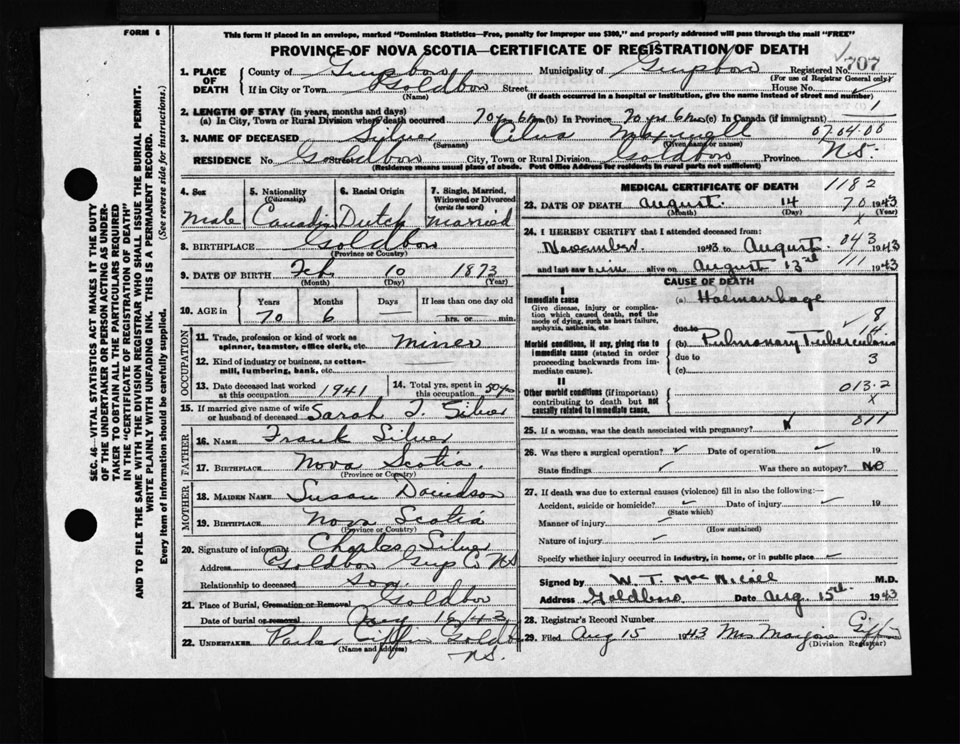 FORM 6
This form if placed in an envelope, marked "Dominion Statistics—Free, penalty for improper use $300," and properly addressed will pass through the mail "FREE"
PROVINCE OF NOVA SCOTIA—CERTIFICATE OF REGISTRATION OF DEATH
1. PLACE OF DEATH County of Municipality of Registered No. 707
(For use of Registrar General only)
If in City or Town Street House No.
(Name) (If death occurred in a hospital or institution, give the name instead of street and number)
2. LENGTH OF STAY (in years, months and days)
(a) In City, Town or Rural Division where death occurred 70 yrs 6 (b) In Province 70 yrs 6 (c) In Canada (if immigrant) 1
3. NAME OF DECEASED Silver Maxwell 070400
(Surname) (Given name or names)
RESIDENCE No. Street City, Town or Rural Division Province N.S.
(Residence means usual place of abode. Post Office Address for residents in rural parts not sufficient)
4. Sex Male
5. Nationality (Citizenship)
6. Racial Origin Dutch
7. Single, Married, Widowed or Divorced (write the word) Married
8. BIRTHPLACE
(Province or Country)
9. DATE OF BIRTH Feb 10 1873
(Month) (Day) (Year)
10. AGE in Years Months Days If less than one day old
70 6 hrs. or min.
OCCUPATION
11. Trade, profession or kind of work as spinner, teamster, office clerk, etc. Miner
12. Kind of industry or business, as cotton-mill, lumbering, bank, etc.
13. Date deceased last worked at this occupation 1941
14. Total yrs. spent in this occupation 50 yrs
15. If married give name of wife or husband of deceased Sarah Silver
FATHER
16. NAME Frank Silver
17. BIRTHPLACE Nova Scotia
(Province or Country)
MOTHER
18. MAIDEN NAME Susan Davidson
19. BIRTHPLACE Nova Scotia
(Province or Country)
20. Signature of informant Charles Silver
Address N.S.
Relationship to deceased Son
21. Place of Burial, Cremation or Removal
Date of burial or removal 16/43
22. UNDERTAKER
(Name and address)
N.S.
MEDICAL CERTIFICATE OF DEATH 1182
23. DATE OF DEATH August 14 70 1943
(Month) (Day) (Year)
x
24. I HEREBY CERTIFY that I attended deceased from:
November 1943 to August 043 1943
and last saw him alive on August 13th 111 1943
CAUSE OF DEATH
I
Immediate cause
Give disease, injury or complication which caused death, not the mode of dying, such as heart failure, asphyxia, asthenia, etc.
(a) Haemorrhage
8
due to
Morbid conditions, if any, giving rise to immediate cause (stated in order proceeding backwards from immediate cause).
(b) Pulmonary Tuberculosis
due to 3
(c)
II
Other morbid conditions (if important) contributing to death but not causally related to immediate cause.
013.2
x
25. If a woman, was the death associated with pregnancy? 011
26. Was there a surgical operation? Date of operation 19
State findings Was there an autopsy? No
27. If death was due to external causes (violence) fill in also the following:—
Accident, suicide or homicide? Date of injury 19
(State which)
Manner of injury
(How sustained)
Nature of injury
Specify whether injury occurred in industry, in home, or in public place
Signed by W. T. M.D.
Address Goldboro Date Aug. 15th 1943
28. Registrar's Record Number
29. Filed Aug 15 1943 Mrs Marjorie
(Division Registrar)
SEC. 46—VITAL STATISTICS ACT MAKES IT THE DUTY
OF THE UNDERTAKER OR PERSON ACTING AS UNDER-
TAKER TO OBTAIN ALL THE PARTICULARS REQUIRED
IN THE "CERTIFICATE OF REGISTRATION OF DEATH"
AND TO FILE THE SAME WITH THE DIVISION REGISTRAR WHO SHALL ISSUE THE BURIAL PERMIT.
WRITE PLAINLY WITH UNFADING INK. THIS IS A PERMANENT RECORD.
Every item of information should be carefully supplied. (See reverse side for instructions.)